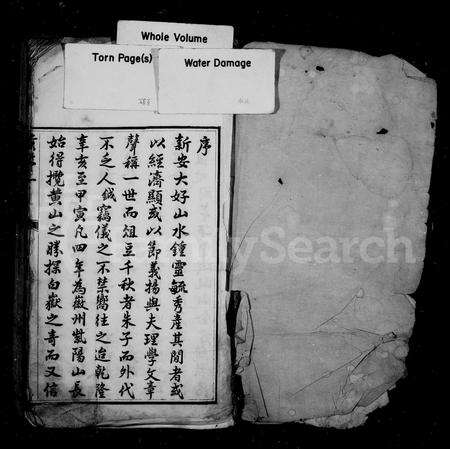 Whole Volume
Torn Page(s)
Water Damage
序
新安大好山水鍾靈毓秀產其間者或
以經濟顯或以節義揚與夫理學文章
聲稱一世而俎豆千秋者朱子而外代
不乏人鉞竊儀之不禁嚮往之迨乾隆
辛亥至甲寅凡四年為徽州紫陽山長
始得攬黃山之勝探白嶽之奇而又信